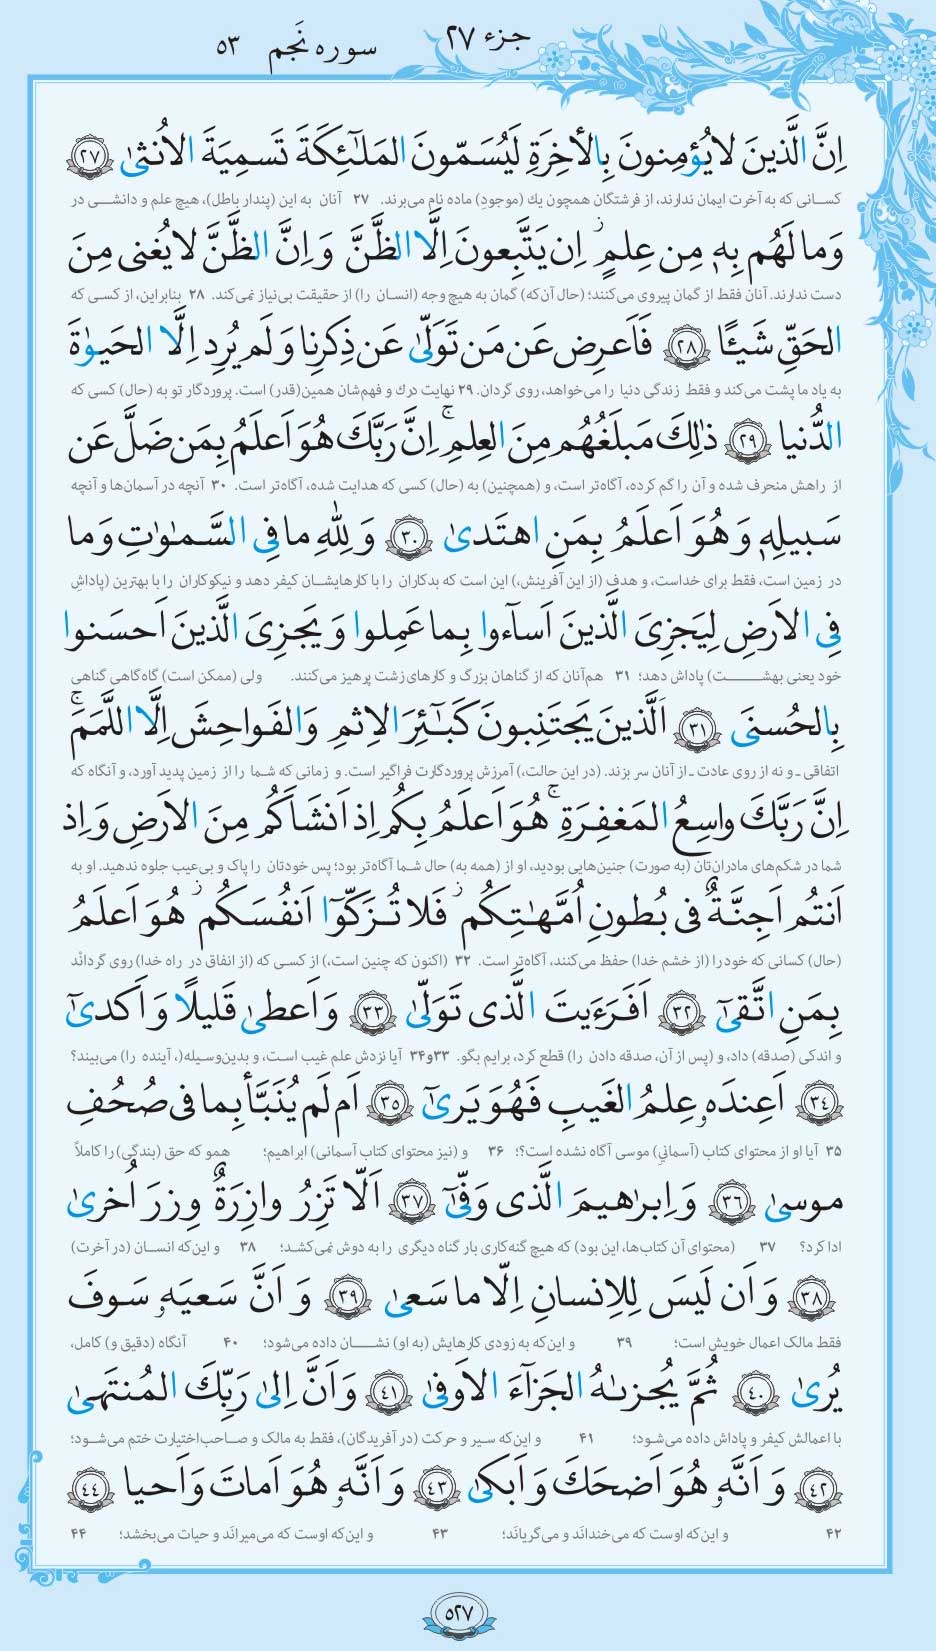 جزء ۲۷
سوره نَجم ۵۳
اِنَّ الَّذینَ لایُؤمِنونَ بِالأخِرَةِ لَیُسَمّونَ المَلٰٓئِكَةَ تَسمِیَةَ الاُنثىٰ ﴿۲۷﴾
کسانی که به آخرت ایمان ندارند، از فرشتگان همچون یك (موجودِ) ماده نام می‌برند. ۲۷ آنان به این (پندار باطل)، هیچ علم و دانشی در
وَما لَهُم بِهٖ مِن عِلمٍ ۖ اِن یَتَّبِعونَ اِلَّا الظَّنَّ وَاِنَّ الظَّنَّ لایُغنی مِنَ
دست ندارند. آنان فقط از گمان پیروی می‌کنند؛ (حال آن‌که) گمان به هیچ وجه (انسان را) از حقیقت بی‌نیاز نمی‌کند. ۲۸ بنابراین، از کسی که
الحَقِّ شَیئًا ﴿۲۸﴾ فَاَعرِض عَن مَن تَوَلّىٰ عَن ذِكرِنا وَلَم یُرِد اِلَّا الحَیوٰةَ
به یاد ما پشت می‌کند و فقط زندگی دنیا را می‌خواهد، روی گردان. ۲۹ نهایت درك و فهم‌شان همین(قدر) است. پروردگار تو به (حال) کسی که
الدُّنیا ﴿۲۹﴾ ذٰلِكَ مَبلَغُهُم مِنَ العِلمِ ۚ اِنَّ رَبَّكَ هُوَ اَعلَمُ بِمَن ضَلَّ عَن
از راهش منحرف شده و آن را گم کرده، آگاه‌تر است، و (همچنین) به (حال) کسی که هدایت شده، آگاه‌تر است. ۳۰ آنچه در آسمان‌ها و آنچه
سَبیلِهٖ وَهُوَ اَعلَمُ بِمَنِ اهتَدىٰ ﴿۳۰﴾ وَلِلّٰهِ ما فِی السَّمٰوٰتِ وَما
در زمین است، فقط برای خداست، و هدف (از این آفرینش،) این است که بدکاران را با کارهایشان کیفر دهد و نیکوکاران را با بهترین (پاداشِ
فِی الاَرضِ لِیَجزِیَ الَّذینَ اَسآءوا بِما عَمِلوا وَیَجزِیَ الَّذینَ اَحسَنوا
خود یعنی بهشت) پاداش دهد؛ ۳۱ هم‌آنان که از گناهان بزرگ و کارهای زشت پرهیز می‌کنند. ولی (ممکن است) گاه‌گاهی گناهی
بِالحُسنَى ﴿۳۱﴾ اَلَّذینَ یَجتَنِبونَ كَبٰٓئِرَ الاِثمِ وَالفَواحِشَ اِلَّا اللَّمَمَ ۚ
اتفاقی ـ و نه از روی عادت ـ از آنان سر بزند. (در این حالت،) آمرزش پروردگارت فراگیر است. و زمانی که شما را از زمین پدید آورد، و آنگاه که
اِنَّ رَبَّكَ واسِعُ المَغفِرَةِ ۚ هُوَ اَعلَمُ بِكُم اِذ اَنشَاَكُم مِنَ الاَرضِ وَاِذ
شما در شکم‌های مادران‌تان (به صورت) جنین‌هایی بودید، او از (همه به) حال شما آگاه‌تر بود؛ پس خودتان را پاک و بی‌عیب جلوه ندهید. او به
اَنتُم اَجِنَّةٌ فی بُطونِ اُمَّهٰتِكُم ۖ فَلا تُزَكّوٓا اَنفُسَكُم ۖ هُوَ اَعلَمُ
(حال) کسانی که خود را (از خشم خدا) حفظ می‌کنند، آگاه‌تر است. ۳۲ (اکنون که چنین است،) از کسی که (از انفاق در راه خدا) روی گردانْد
بِمَنِ اتَّقىٰٓ ﴿۳۲﴾ اَفَرَءَیتَ الَّذی تَوَلّىٰ ﴿۳۳﴾ وَاَعطىٰ قَلیلًا وَاَكدىٰٓ
و اندکی (صدقه) داد، و (پس از آن، صدقه دادن را) قطع کرد، برایم بگو. ۳۳و۳۴ آیا نزدش علم غیب است، و بدین‌وسیله(، آینده را) می‌بیند؟
﴿۳۴﴾ اَعِندَهٗ عِلمُ الغَیبِ فَهُوَ یَرىٰٓ ﴿۳۵﴾ اَم لَم یُنَبَّأ بِما فی صُحُفِ
۳۵ آیا او از محتوای کتاب (آسمانیِ) موسی آگاه نشده است؟؛ ۳۶ و (نیز محتوای کتاب آسمانی) ابراهیم؛ همو که حق (بندگی) را کاملاً
موسىٰ ﴿۳۶﴾ وَاِبرٰهیمَ الَّذی وَفّىٰٓ ﴿۳۷﴾ اَلّا تَزِرُ وازِرَةٌ وِزرَ اُخرىٰ
ادا کرد؟ ۳۷ (محتوای آن کتاب‌ها، این بود) که هیچ گنه‌کاری بار گناه دیگری را به دوش نمی‌کشد؛ ۳۸ و این‌که انسان (در آخرت)
﴿۳۸﴾ وَاَن لَیسَ لِلاِنسانِ اِلّا ما سَعىٰ ﴿۳۹﴾ وَاَنَّ سَعیَهٗ سَوفَ
فقط مالک اعمال خویش است؛ ۳۹ و این‌که به زودی کارهایش (به او) نشان داده می‌شود؛ ۴۰ آنگاه (دقیق و) کامل،
یُرىٰ ﴿۴۰﴾ ثُمَّ یُجزٰىهُ الجَزآءَ الاَوفىٰ ﴿۴۱﴾ وَاَنَّ اِلىٰ رَبِّكَ المُنتَهىٰ
با اعمالش کیفر و پاداش داده می‌شود؛ ۴۱ و این‌که سیر و حرکت (در آفریدگان)، فقط به مالک و صاحب‌اختیارت ختم می‌شود؛
﴿۴۲﴾ وَاَنَّهٗ هُوَ اَضحَكَ وَاَبكىٰ ﴿۴۳﴾ وَاَنَّهٗ هُوَ اَماتَ وَاَحیا ﴿۴۴﴾
۴۲ و این‌که اوست که می‌خندانَد و می‌گریاند؛ ۴۳ و این‌که اوست که می‌میرانَد و حیات می‌بخشد؛ ۴۴
۵۲۷